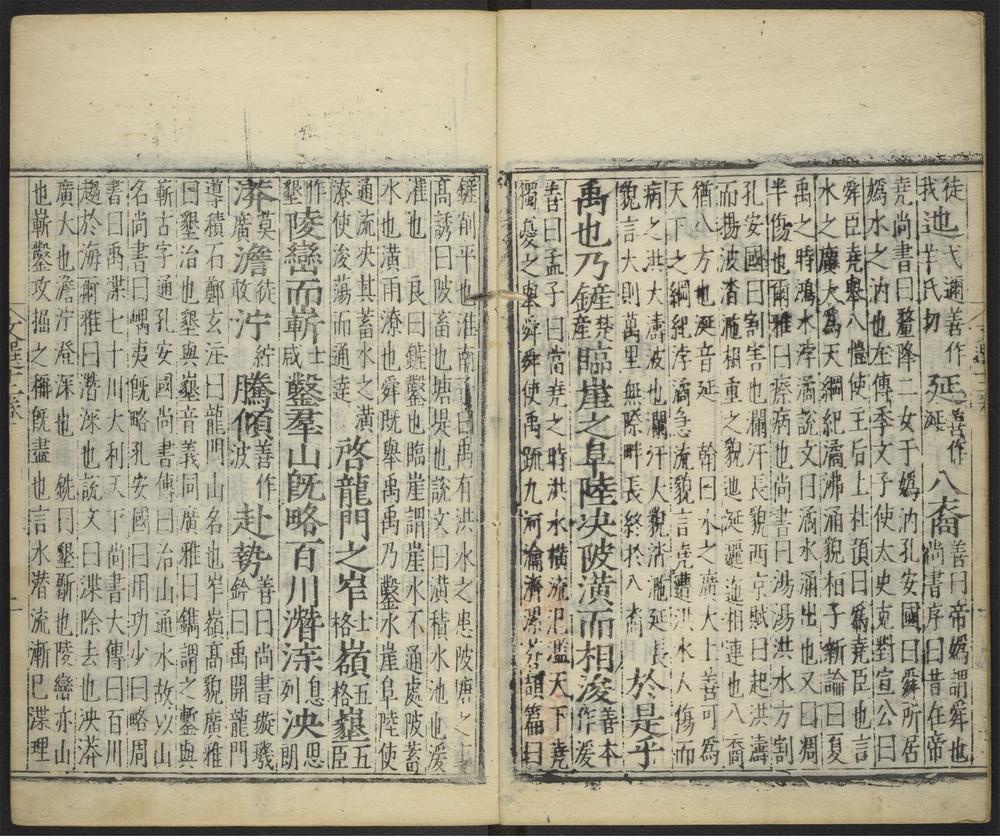 徒我迆弋爾善作羊氏切延善作涎八裔善曰帝嬀謂舜也尚書序曰昔在帝
堯尚書曰釐降二女于嬀汭孔安國曰舜所居
嬀水之汭也左傳季文子使太史克對宣公曰
舜臣堯舉八愷使王后土杜預曰爲堯臣也言
水之廣大爲天綱紀潏沸涌貌相子新論曰夏
禹之時鴻水浡潏說文曰潏水涌出也又曰凋
半傷也爾雅曰瘵病也尚書曰湯湯洪水方割
孔安國曰割害也瀾汗長貌西京賦曰起洪濤
而揚波相重之貌迆涎邐迤相連也八裔
猶八方也涎音延 翰曰水之廣大上善可爲
天下之綱紀浡潏急流貌言堯遭洪水人傷而
病之洪大濤波也瀾汗大貌延長
貌言大則萬里無際畔長終於八裔 於是乎
禹也乃鏟楚產臨崖之阜陸决陂潢而相浚善本作湲
善曰孟子曰當堯之時洪水橫流氾濫天下堯
獨憂之舉舜舜使禹疏九河瀹濟漯芬頡篇曰
鏟削平也淮南子曰禹有洪水之患陂塘之事
高誘曰陂畜也塘堤也說文曰潢積水池也湲
灌也 良曰鏟鑿也臨崖謂崖水不通處陂蓄
水也潢雨潦也舜既舉禹禹乃鑿水崖阜陸使
通流决其蓄水之潢潦使浚蕩而通達 啓龍門之岝士格嶺五格墾五臣作墾
陵巒而嶄士咸鑿羣山旣略百川潛渫息列泱思朗
漭莫廣澹徒敢泞紵騰傾善作波赴勢善曰尚書璇璣鈐曰禹開龍門
導積石鄭玄注曰龍門山名也岝嶺高貌廣雅
曰墾治也墾與墾音義同廣雅曰鐫謂之鏨與
嶄古字通孔安國尚書傳曰治山通水故以山
名尚書曰嵎夷旣略孔安國曰用功少曰略周
書曰禹渫七十川大利天下尚書大傳曰百川
趨於海爾雅曰潛深也說文曰渫除去也泱漭
廣大也澹泞澄深也 銑曰墾斷也陵巒亦山
也嶄鑿攻掘之稱旣盡也言水潛流漸已渫理